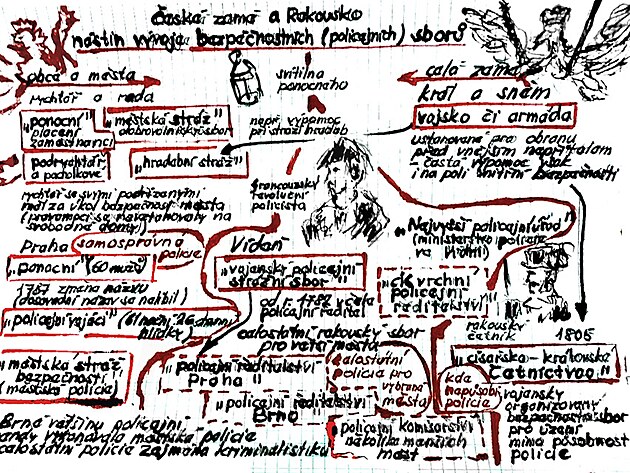 česká země a Rakousko
nástin vývoje bezpečnostních (policejních) sborů
obce a města
rychtář a rada
"ponocní"
placení
zaměstnanci
"městská stráž"
dobrovolnický sbor
podrychtář
a pacholkové
"hradební stráž"
svítilna
ponocného
např. výpomoc
při stráži hradeb
celá země
král a sněm
vojsko či armáda
ustanovené pro obranu
před vnějším nepřítelem
častá výpomoc však
i na poli vnitřní bezpečnosti
rychtář se svými podřízenými
měl za úkol bezpečnost města
(pravomoci se nevztahovaly na
svobodné domy)
francouzský
revoluční
policista
Praha
samosprávná
policie
"ponocní" (60 mužů)
1787 změna názvu
(dosavadní název se nelíbil)
"policejní vojáci"
"městská stráž
bezpečnosti"
(městská policie)
Vídeň
"vojenský policejní
strážní sbor"
od r. 1782 včela
policejní ředitel
celostátní rakouský sbor
pro větší města
"policejní ředitelství
Praha"
"policejní ředitelství
Brno"
celostátní
policie pro
vybraná
města
"Nejvyšší policejní úřad"
(ministerstvo policie
ve Vídni)
"ck vrchní
policejní
ředitelství"
rakouský
četník
1805
"císařsko-královské
četnictvo"
kde
nepůsobí
policie
vojensky
organizovaný
bezpečnostní sbor
pro území
mimo působnost
policie
policejní komisařství
několika menších
měst
Brno většinu policejní
agendy vykonávala městská policie
celostátní policie zejména kriminalistiku